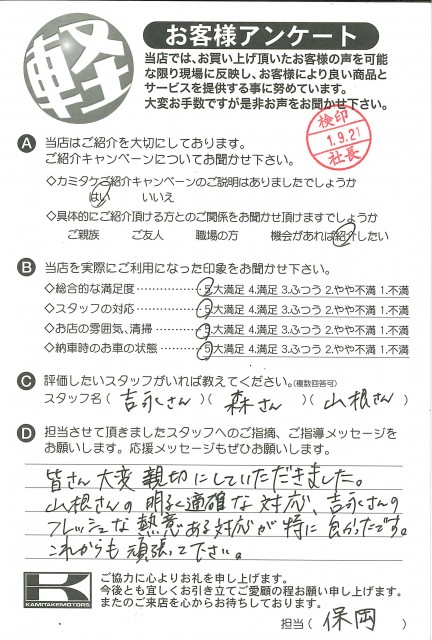 軽
お客様アンケート
当店では、お買い上げ頂いたお客様の声を可能
な限り現場に反映し、お客様により良い商品と
サービスを提供する事に努めています。
大変お手数ですが是非お声をお聞かせ下さい。
検印
1.9.21
社長
A 当店はご紹介を大切にしております。
ご紹介キャンペーンについてお聞かせ下さい。
◇カミタケご紹介キャンペーンのご説明はありましたでしょうか
はい いいえ
◇具体的にご紹介頂ける方とのご関係をお聞かせ頂けますでしょうか
ご親族 ご友人 職場の方 機会があれば紹介したい
B 当店を実際にご利用になった印象をお聞かせ下さい。
◇総合的な満足度 5.大満足 4.満足 3.ふつう 2.やや不満 1.不満
◇スタッフの対応 5.大満足 4.満足 3.ふつう 2.やや不満 1.不満
◇お店の雰囲気、清掃 5.大満足 4.満足 3.ふつう 2.やや不満 1.不満
◇納車時のお車の状態 5.大満足 4.満足 3.ふつう 2.やや不満 1.不満
C 評価したいスタッフがいれば教えてください。(複数回答可)
スタッフ名(吉永さん)(森さん)(山根さん)
D 担当させて頂きましたスタッフへのご指摘、ご指導メッセージを
お願いします。応援メッセージもぜひお願いします。
皆さん大変親切にしていただきました。
山根さんの明るく適確な対応、吉永さんの
フレッシュな熱意ある対応が特に良かったです。
これからも頑張って下さい。
K
KAMITAKEMOTORS
ご協力に心よりお礼を申し上げます。
今後とも宜しくお引き立てご愛顧の程お願い申し上げます。
またのご来店を心からお待ちしております。
担当(保岡)